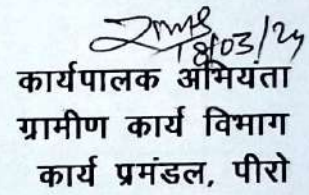 18/03/24
कार्यपालक अभियंता
ग्रामीण कार्य विभाग
कार्य प्रमंडल, पीरो